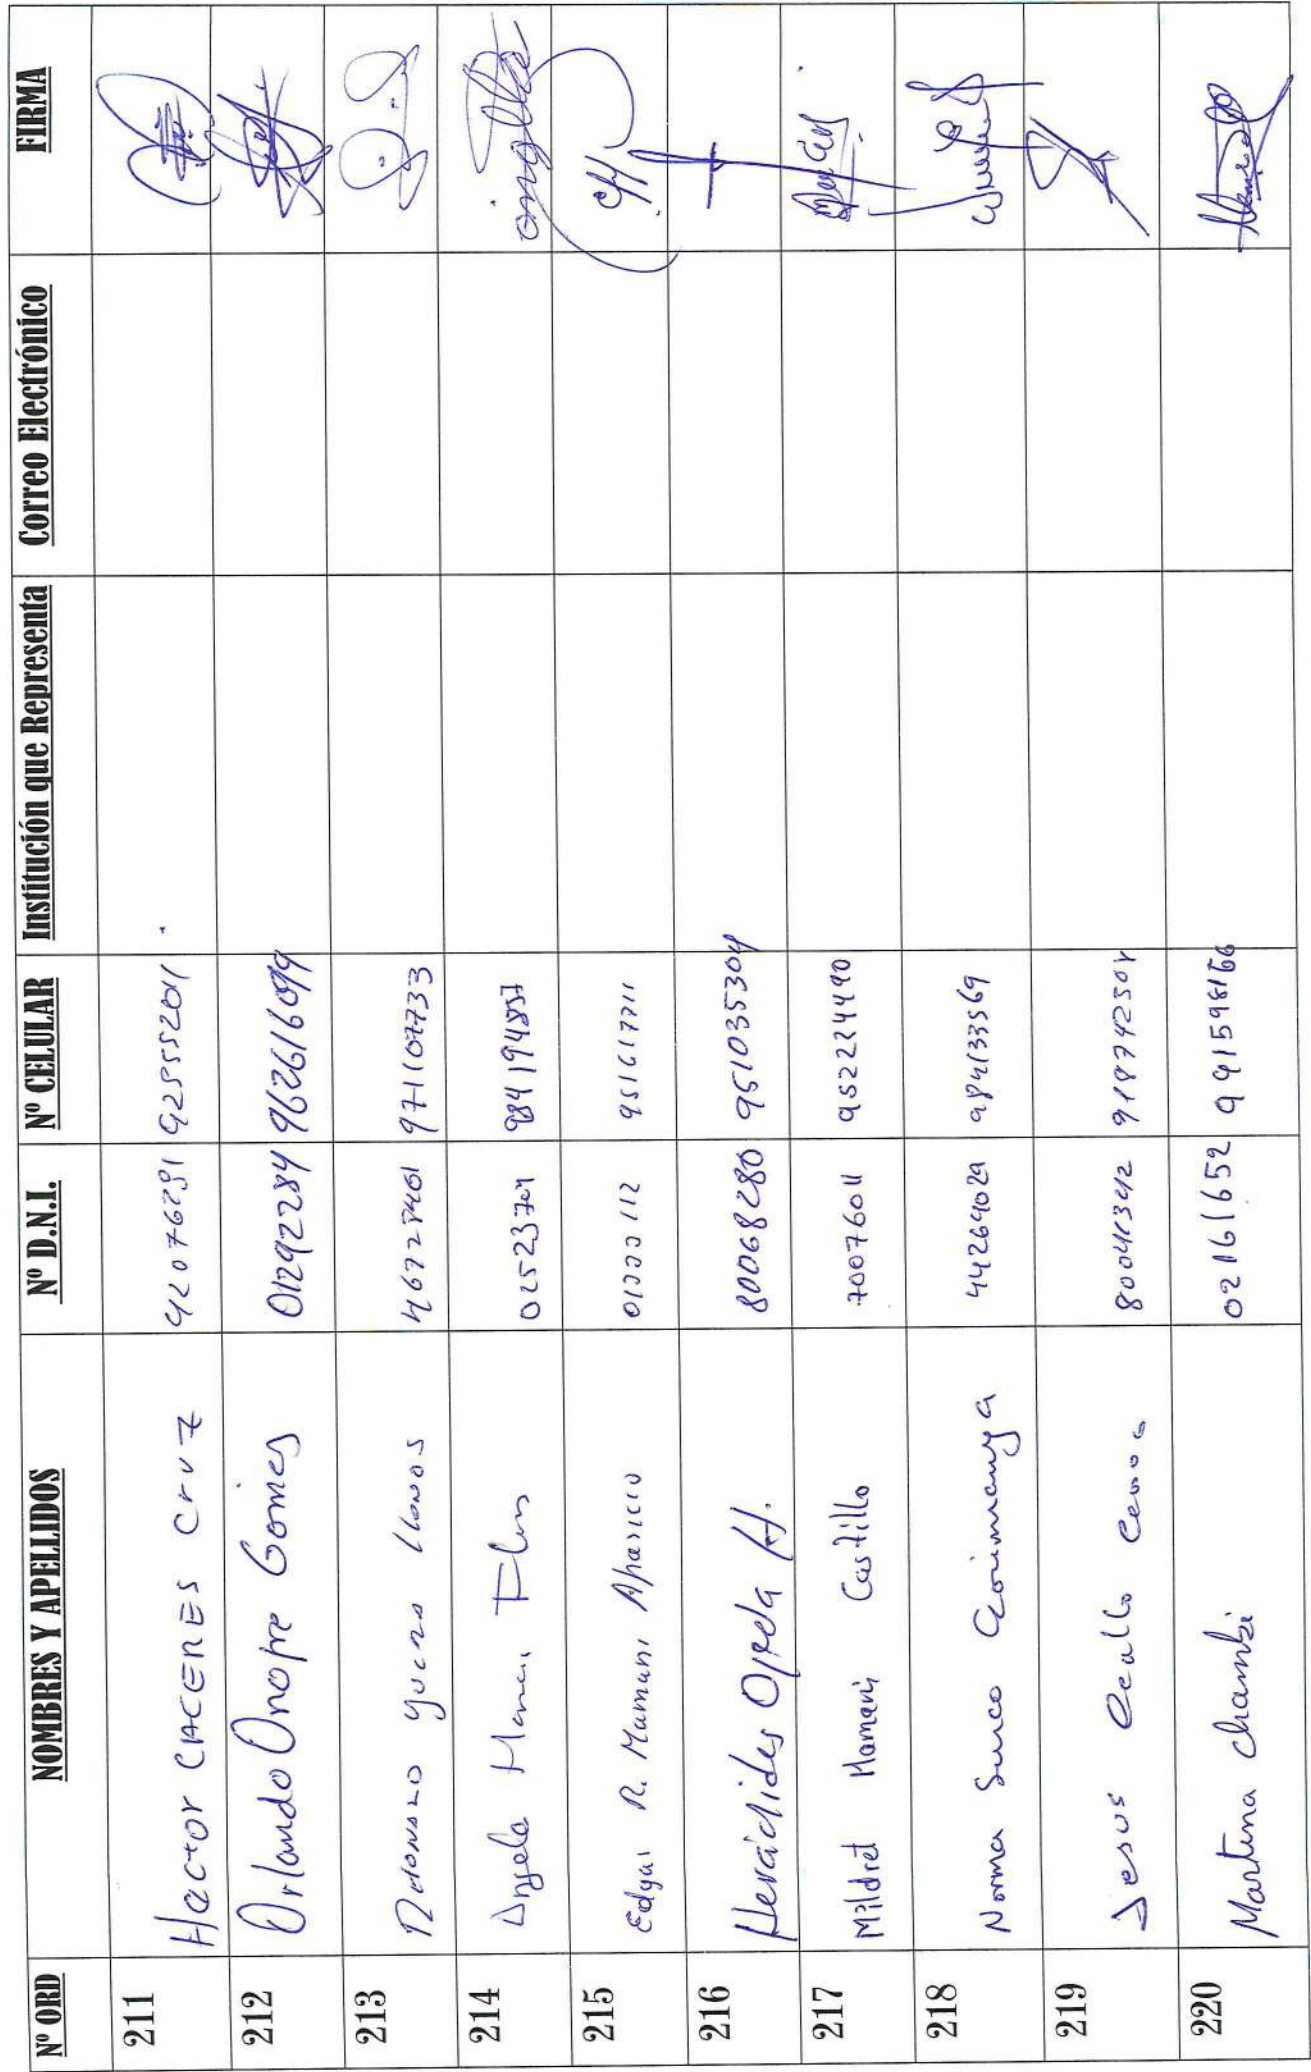 Nº ORD NOMBRES Y APELLIDOS Nº D.N.I. Nº CELULAR Institución que Representa Correo Electrónico FIRMA
211 Hector CACERES Cruz 42076291 925552011
212 Orlando Onofre Gomes 01292284 962616099
213 971107733
214 Angela Flores 02523704 984194857
215 Edgar R. Mamani Aparicio 951617711
216 Heráclides Ojeda H. 80068280 951035304
217 Mildret Mamani Castillo 70076011 952224490
218 Norma Surco Corimanya 44264029 984133569
219 Jesus Ccallo 80041342
220 Martina Chambi 02161652 991598166